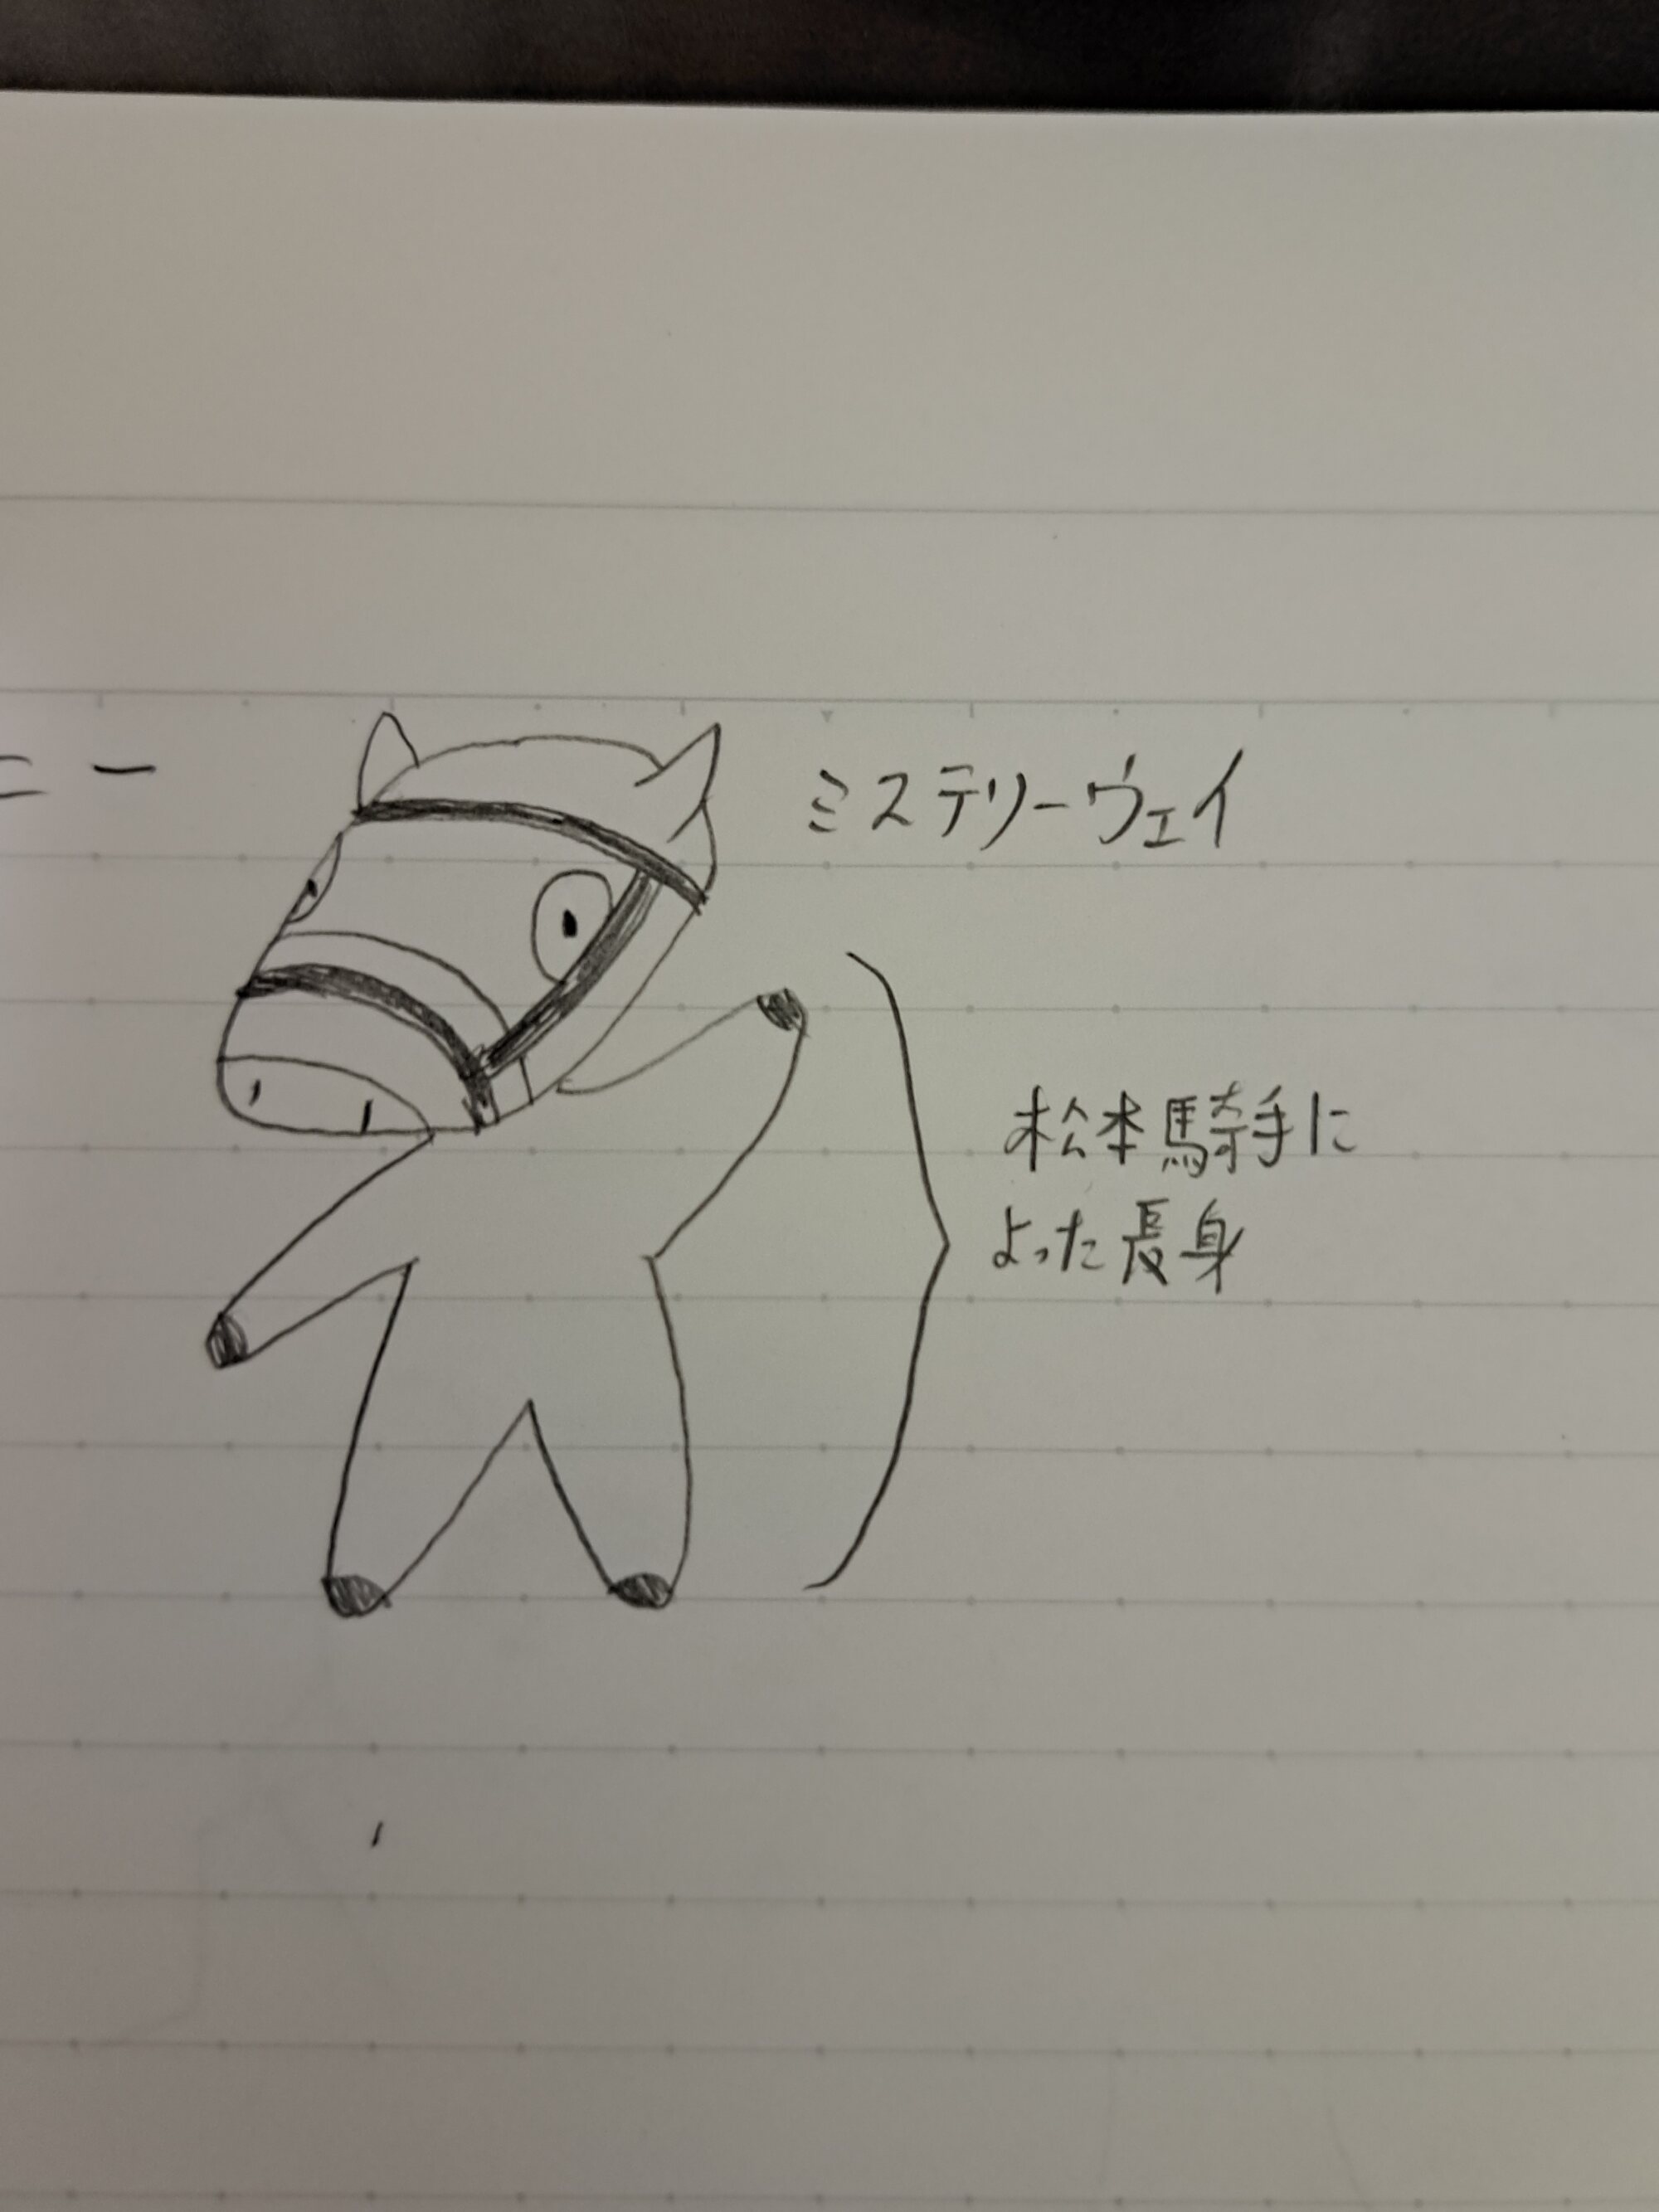 ニー
ミステリーウェイ
松本騎手に
よった長身